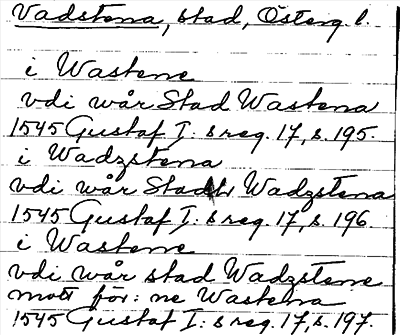 Vadstena, stad, Österg l.
i Wastene
vdi wår Stad Wastena
1545 Gustaf I: s reg. 17, s. 195.
i Wadzstena
vdi wår Stadt Wadzstena
1545 Gustaf I: s reg. 17, s. 196.
i Wastene
vdi wår stad Wadzstene
mott för: ne Wastena
1545 Gustaf I: s reg. 17, s. 197.